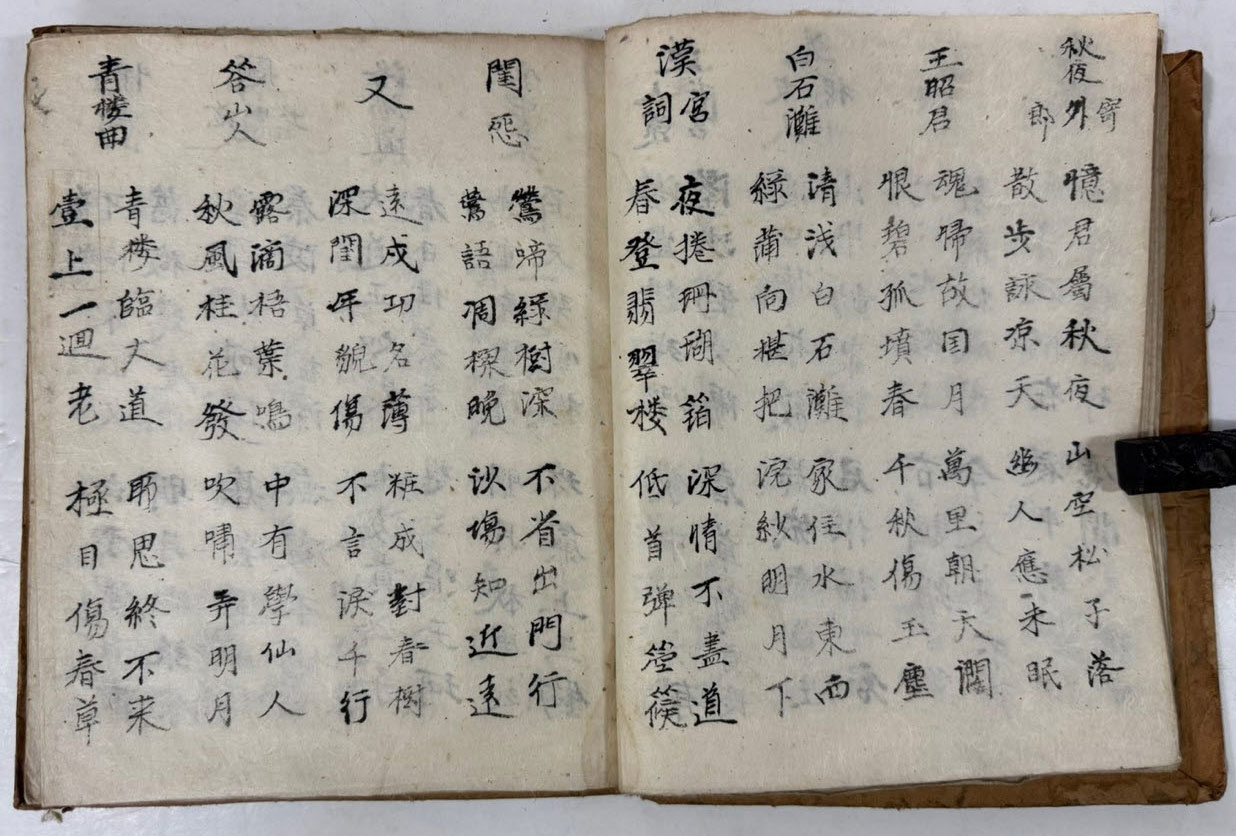 秋夜寄外郎
憶君屬秋夜 山空松子落
散步詠凉天 幽人應未眠
王昭君
魂帰故国月 萬里朝天濶
恨碧孤墳春 千秋傷玉塵
白石灘
清浅白石灘 家住水東西
緑蒲向堪把 浣紗明月下
漢宮詞
夜捲珊瑚箔 深情不盡道
春登翡翠楼 低首弾箜篌
閨怨
鶯啼緑樹深 不省出門行
鶯語凋樑晩 沙場知近遠
又
遠戍功名薄 粧成對春樹
深閨年貌傷 不言涙千行
答山人
露滴梧葉鳴 中有學仙人
秋風桂花發 吹嘯弄明月
青楼曲
青楼臨大道 所思終不来
壹上一迴老 極目傷春草